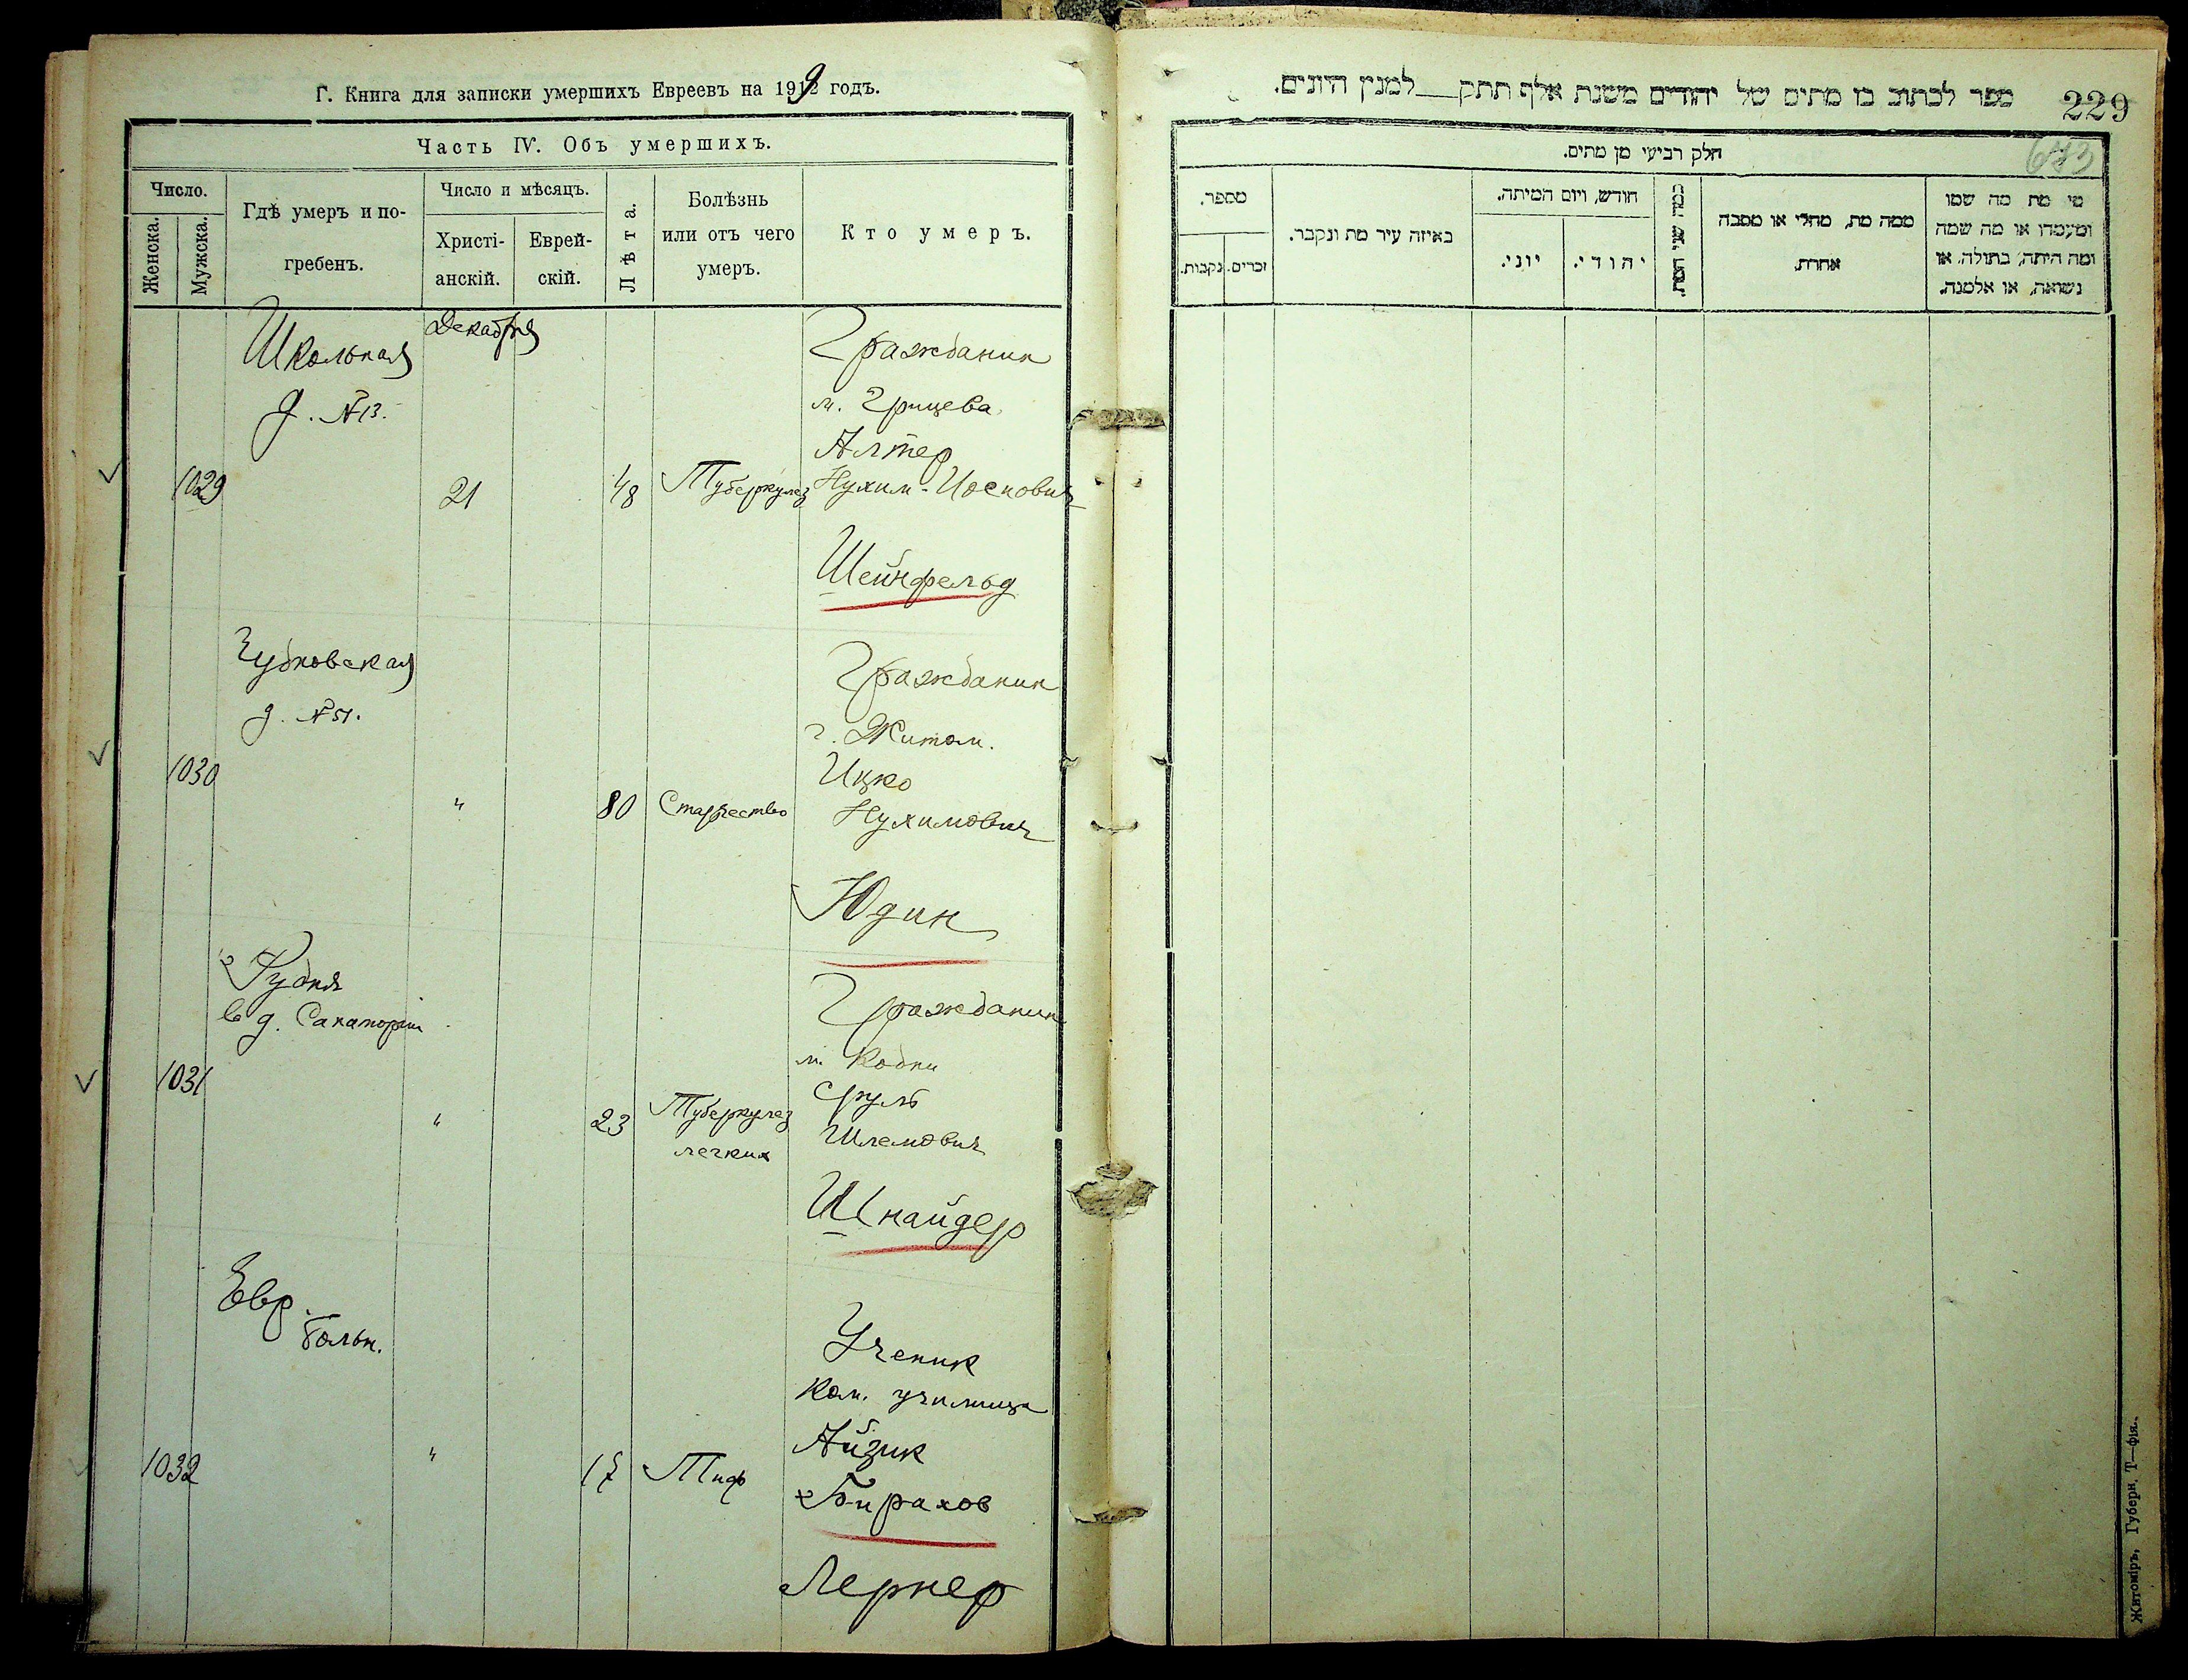 Г. Книга для записки умершихъ Евреевъ на 1919 годъ.
Часть IV. Объ умершихъ.
Число.
Женска.
Мужска.
Гдѣ умеръ и по-
гребенъ.
Число и мѣсяцъ.
Христі-
анскій.
Еврей-
скій.
Лѣта.
Болѣзнь
или отъ чего
умеръ.
Кто умеръ.
Школьная
д. №13.
Декабря
1029
21
48
Туберкулез
Гражданин
м. Грицева
Алтер
Нухим-Иосипович
Шейнфельд
Чудновская
д. №51.
1030
"
80
Старчество
Гражданин
г. Житом.
Ицко
Нухимович
Юдин
Рудня
в д. Санатории
1031
"
23
Туберкулез
легких
Гражданин
м. Кодни
Сруль
Шлемович
Шнайдер
Евр.
Больн.
1032
"
17
Тиф
Ученик
Ком. училища
Айзик
Бирахов
Лернер
ספר לכתוב בו מתים של יהודים משנת אלף תתק למנין היונים.
229
643
חלק רביעי מן מתים.
מספר.
נקבות.
זכרים.
באיזה עיר מת ונקבר.
חודש, ויום המיתה.
יוני.
יהודי.
כמה שני המת.
ממה מת, מחלי או מסבה
אחרת.
מי מת מה שמו
ומעמדו או מה שמה
ומה היתה, בתולה, או
נשואה, או אלמנה.
Житоміръ, Губерн. Т—фія.